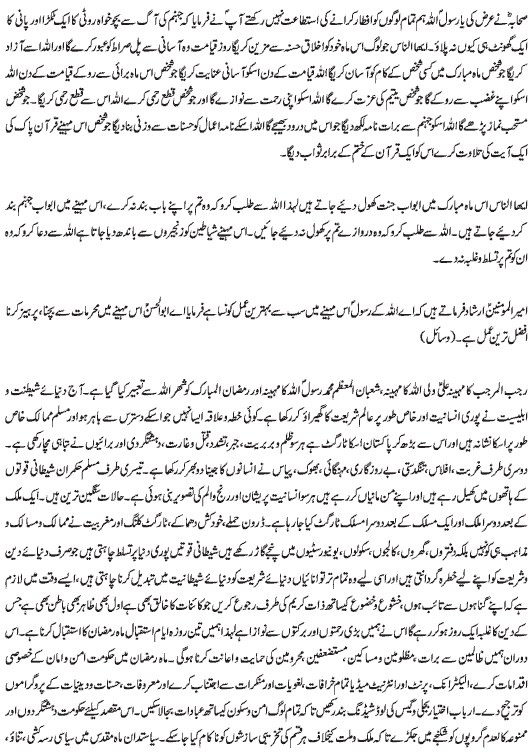 صحابہؓ نے عرض کی یا رسول اللہؐ ہم تمام لوگوں کو افطار کرانے کی استطاعت نہیں رکھتے آپؐ نے فرمایا کہ جہنم کی آگ سے بچو خواہ روٹی کا ایک ٹکڑا اور پانی کا
ایک گھونٹ ہی کیوں نہ پلاؤ۔ ایھا الناس جو لوگ اس ماہ خود کو اخلاق حسنہ سے مزین کریگا روز قیامت وہ آسانی سے پل صراط کو عبور کرے گا اور اسے آزاد
کرے گا جو شخص ماہ مبارک میں کسی شخص کے کام کو آسان کریگا اللہ قیامت کے دن اسکو آسانی عنایت کریگا جو شخص اس ماہ برائی سے روکے گا قیامت کے دن
اسکو اپنے غضب سے روکے گا جو شخص یتیم کی عزت کرے گا اللہ اسکو اپنی رحمت سے نوازے گا اور جو شخص قطع رحمی کرے اللہ اس سے قطع رحمی کرے گا جو شخص
مستحب نماز پڑھے گا اللہ اسکو جہنم سے برات نامہ لکھ دیگا جو اس میں درود بھیجے گا اللہ اسکے نامہ اعمال کو حسنات سے وزنی بنا دیگا جو شخص اس مہینے قرآن پاک کی
ایک آیت کی تلاوت کرے اس کو ایک قرآن کے ختم کے برابر ثواب دیگا۔
ایھا الناس اس ماہ مبارک میں ابواب جنت کھول دیئے جاتے ہیں لہذا اللہ سے طلب کرو کہ وہ تم پر اپنے باب بند نہ کرے، اس مہینے میں ابواب جہنم بند
کر دیئے جاتے ہیں۔ اس اللہ سے طلب کرو کہ وہ دروازے تم پر کھول نہ دیئے جائیں۔ اس مہینے شیاطین کو زنجیروں سے باندھ دیا جاتا ہے اللہ سے دعا کرو کہ وہ
ان کو تم پر تسلط و غلبہ نہ دے۔
امیر المومنینؑ ارشاد فرماتے ہیں کہ اے اللہ کے رسولؐ اس مہینے میں سب سے بہترین عمل کونسا ہے فرمایا اے ابوالحسنؑ اس مہینے میں محرمات سے بچنا، پرہیز کرنا
افضل ترین عمل ہے۔ (وسائل)
رجب المرجب کا مہینہ علیؑ ولی اللہ کا مہینہ، شعبان المعظم محمد رسولؐ اللہ کا مہینہ اور رمضان المبارک کو شھر اللہ سے تعبیر کیا گیا ہے۔ آج دنیائے شیطنت و
ابلیسیت نے پوری انسانیت اور خاص طور پر عالم شریعت کا گھیراؤ کر رکھا ہے۔ کوئی خطہ و علاقہ ایسا نہیں جو اسکے دسترس سے باہر ہو اور مسلم ممالک خاص
طور پر اسکا نشانہ ہیں اور اس سے بڑھ کر پاکستان اسکا ٹارگٹ ہے ہر سو ظلم و بربریت، جبر و تشدد، قتل و غارت، دہشتگردی اور برائیوں نے تباہی مچا رکھی ہے۔
دوسری طرف غربت، افلاس، تنگدستی، بے روزگاری، مہنگائی، بھوک، پیاس نے انسانوں کا جینا دوبھر کر رکھا ہے۔ تیسری طرف مسلم حکمران شیطانی قوتوں
کے ہاتھوں میں کھیل رہے ہیں اور اپنے من مانیاں کر رہے ہیں ہر سو انسانیت پریشان اور رنج و الم کی تصویر بنی ہوئی ہے۔ حالات سنگین ترین ہیں۔ ایک ملک
کے بعد دوسرا ملک اور ایک مسلک کے بعد دوسرا مسلک ٹارگٹ کیا جا رہا ہے۔ ڈرون حملے، خودکش دھماکے، ٹارگٹ کلنگ اور مغربیت نے ممالک و مسالک و
مذاہب ہی کو نہیں بلکہ دفتروں، گھروں، کالجوں، سکولوں، یونیورسٹیوں میں پنجے گاڑ رکھے ہیں شیطانی قوتیں پوری دنیا پر تسلط چاہتی ہیں جو صرف دنیائے دین
و شریعت کو اپنے لیے خطرہ گردانتی ہیں اور اسی لیے وہ تمام تر توانائیاں دنیائے شریعت کو دنیائے شیطانیت میں تبدیل کرنا چاہتی ہیں، ایسے وقت میں لازم
ہے کہ اپنے گناہوں سے تائب ہوں، خشوع و خضوع کیساتھ ذات کریم کی طرف رجوع کریں جو کائنات کا خالق بھی ہے اول بھی ظاہر بھی باطن بھی ہے جس
کے دین کا غلبہ ایک روز ہو کر رہے گا اس نے ہمیں بڑی رحمتوں اور برکتوں سے نوازا ہے لہذا ہمیں تین روزہ ایام استقبال ماہ رمضان کا استقبال کرنا ہے۔ اس
دوران ہمیں ظالمین سے برات، مظلومین و مساکین، مستضعفین، محرومین کی حمایت و اعانت کرنا ہوگی۔ ماہ رمضان میں حکومت امن و امان کے خصوصی
اقدامات کرے، الیکٹرانک، پرنٹ اور انٹرنیٹ میڈیا تمام خرافات، لغویات اور منکرات سے اجتناب کرے اور معروفات، حسنات و دینیات کے پروگراموں
کو ترجیح دے۔ ارباب اختیار بجلی و گیس کی لوڈشیڈنگ بند رکھیں تاکہ تمام لوگ امن و سکون کیساتھ عبادات بجا لائیں۔ اس مقصد کیلئے حکومت دہشتگردوں اور
کالعدم گروپوں کو شکنجے میں جکڑے تاکہ ملک و ملت کیخلاف ہر قسم کی تخریبی سازشوں کو ناکام کیا جا سکے۔ سیاستدان ماہ مقدس میں سیاسی رسہ کشی، تناؤ،